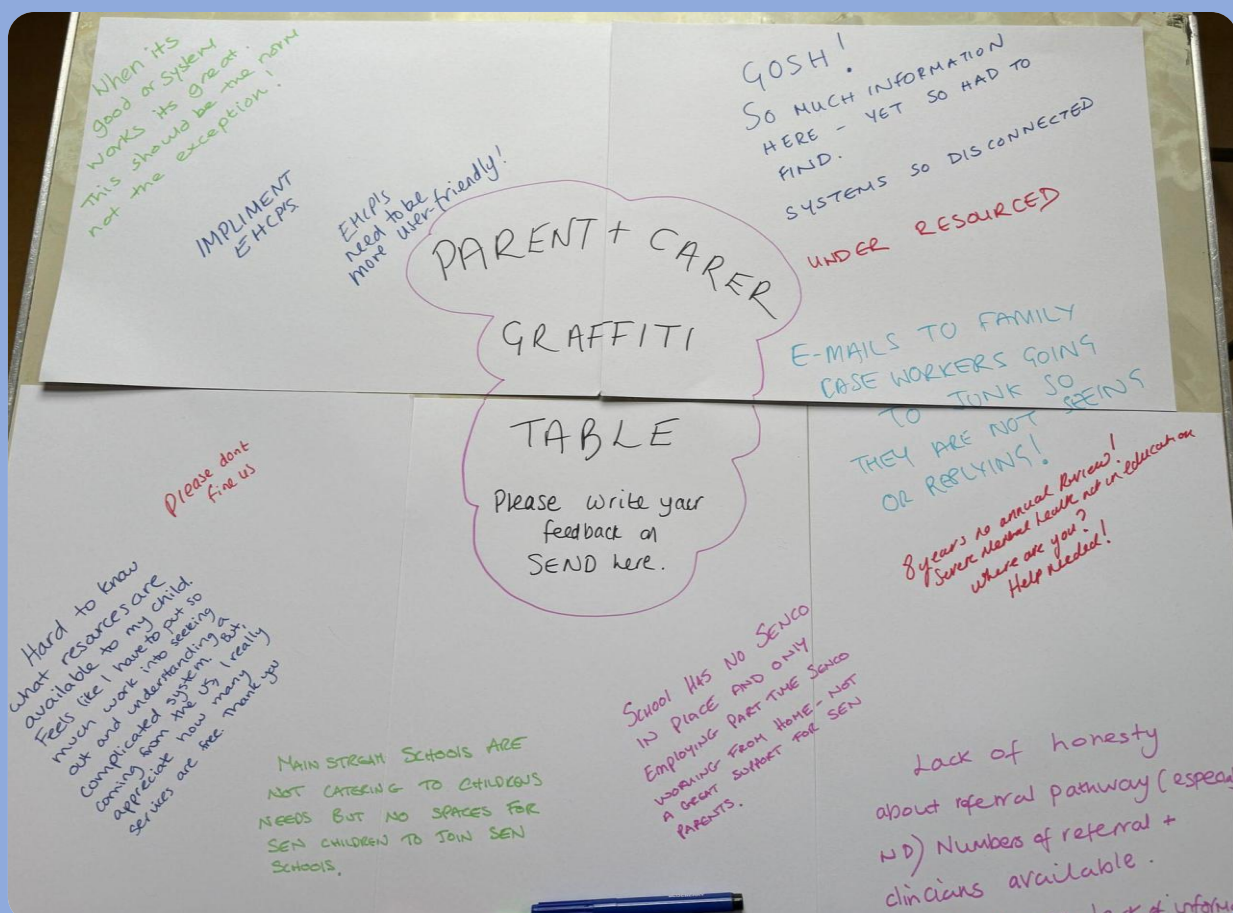 When its
good or system
works its great.
This should be the norm
not the exception!
IMPLIMENT
EHCP'S
EHCP's
need to be
more user-friendly!
GOSH!
SO MUCH INFORMATION
HERE - YET SO HAD TO
FIND.
SYSTEMS SO DISCONNECTED
UNDER RESOURCED
PARENT + CARER
GRAFFITI
TABLE
Please write your
feedback on
SEND here.
E-MAILS TO FAMILY
CASE WORKERS GOING
TO JUNK SO
THEY ARE NOT SEEING
OR REPLYING!
8 years no annual Review!
Severe Mental health not in education
where are you?
Help Needed!
Please dont
fine us
Hard to know
what resources are
available to my child.
Feels like I have to put so
much work into seeking
out and understanding a
complicated system. But,
coming from the US, I really
appreciate how many
services are free. Thank you
MAINSTREAM SCHOOLS ARE
NOT CATERING TO CHILDRENS
NEEDS BUT NO SPACES FOR
SEN CHILDREN TO JOIN SEN
SCHOOLS.
SCHOOL HAS NO SENCO
IN PLACE AND ONLY
EMPLOYING PART TIME SENCO
WORKING FROM HOME - NOT
A GREAT SUPPORT FOR SEN
PARENTS.
Lack of honesty
about referral pathway (especia
ND) Numbers of referral +
clincians available.
lack of inform